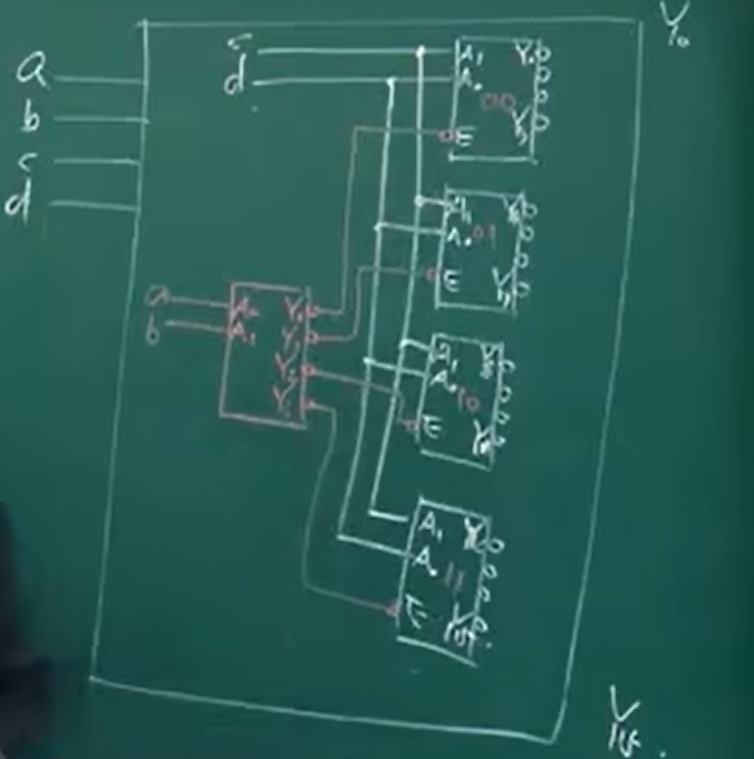 Y₀
a
b
c
d
c
d
A₁ Y₀
A₀
00
Y₃
E
A₁ Y₄
A₀ 01
E Y₇
a A₀ Y₀
b A₁ Y₁
Y₂
Y₃
A₁ Y₈
A₀
10
E
A₁
A₀
11
E Y₁₅
Y₁₅